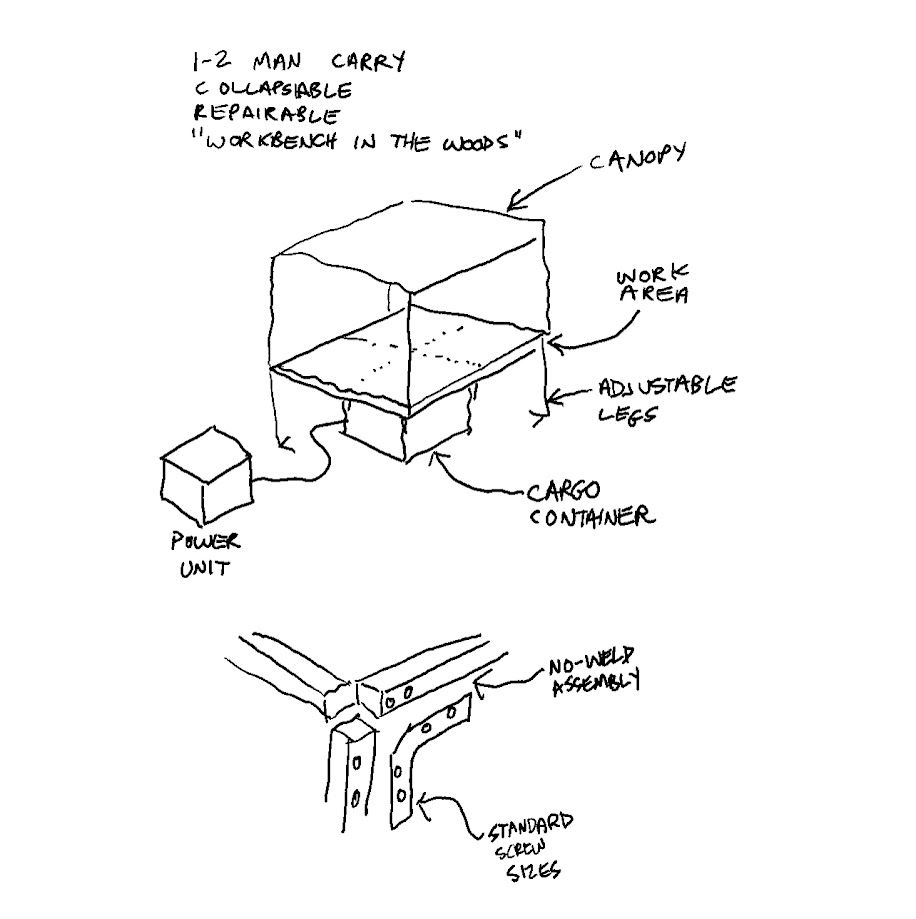 1-2 MAN CARRY
COLLAPSIABLE
REPAIRABLE
"WORKBENCH IN THE WOODS"
CANOPY
WORK
AREA
ADJUSTABLE
LEGS
CARGO
CONTAINER
POWER
UNIT
NO-WELD
ASSEMBLY
STANDARD
SCREW
SIZES